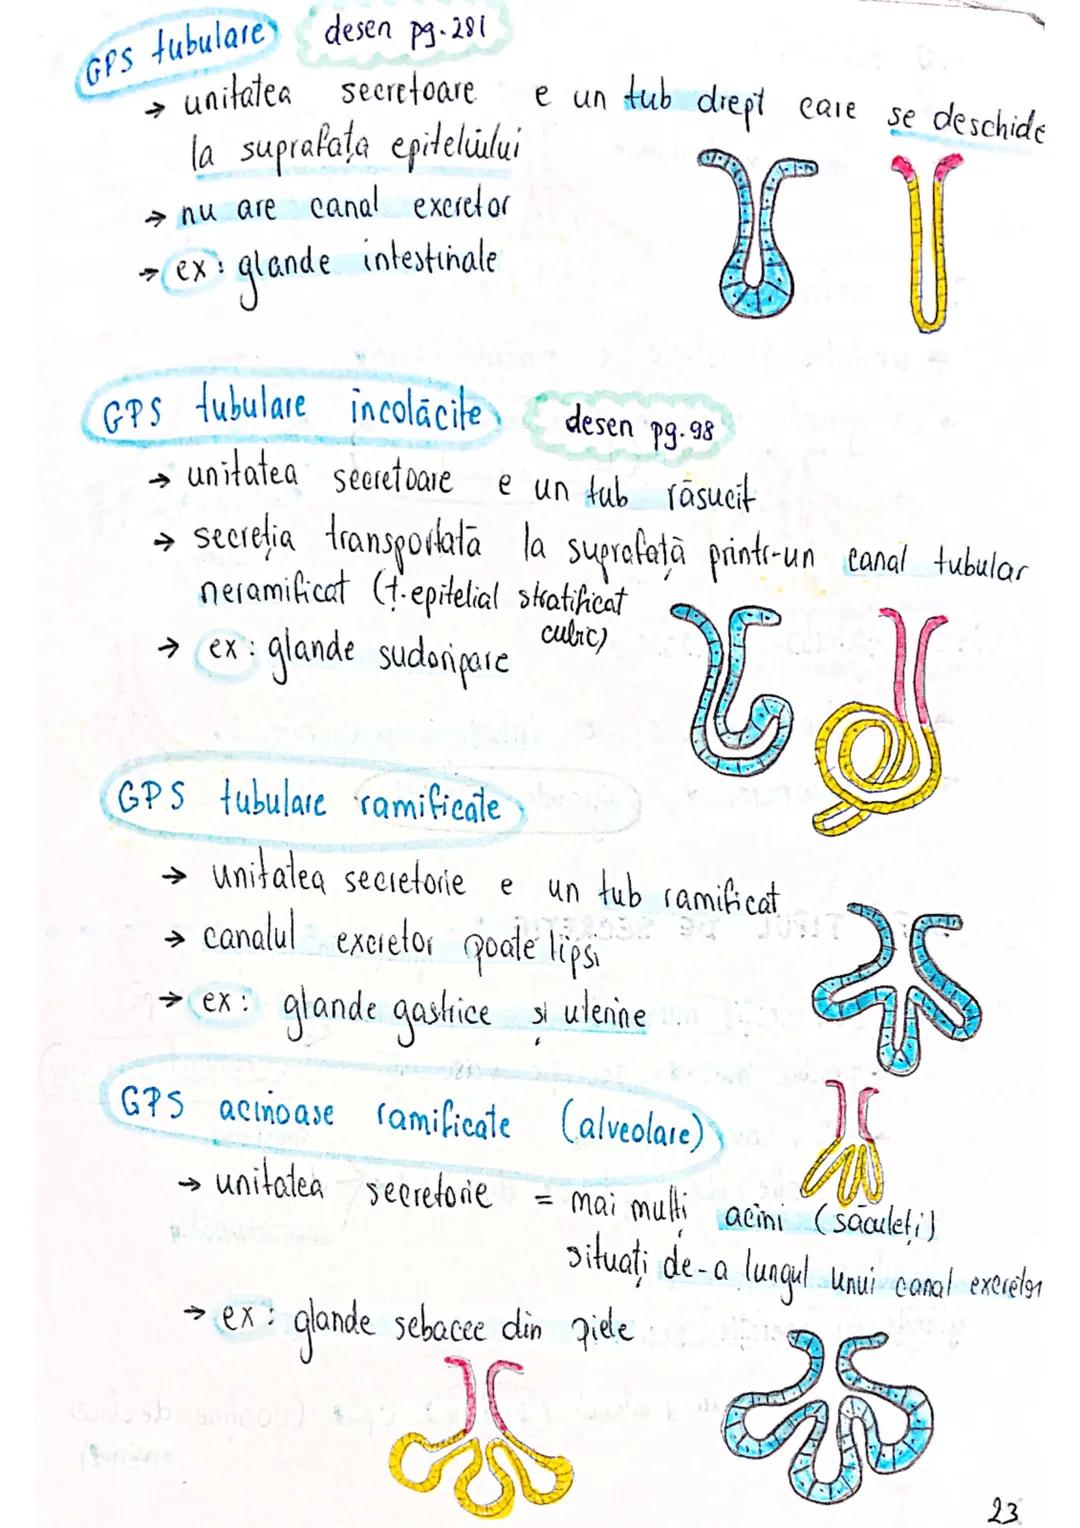 GPS tubulare desen pg. 281
→ unitatea secretoare e un tub drept care se deschide
la suprafața epiteliului
→ nu are canal excretor
→ ex: glande intestinale
GPS tubulare încolăcite desen pg. 98
→ unitatea secretoare e un tub răsucit
→ secreția transportată la suprafață printr-un canal tubular
neramificat (ț. epitelial stratificat
cubic)
→ ex: glande sudoripare
GPS tubulare ramificate
→ unitatea secretorie e un tub ramificat
→ canalul excretor poate lipsi
→ ex: glande gastrice și uterine
GPS acinoase ramificate (alveolare)
→ unitatea secretorie = mai mulți acini (săculeți)
situați de-a lungul unui canal excretor
→ ex: glande sebacee din piele
23